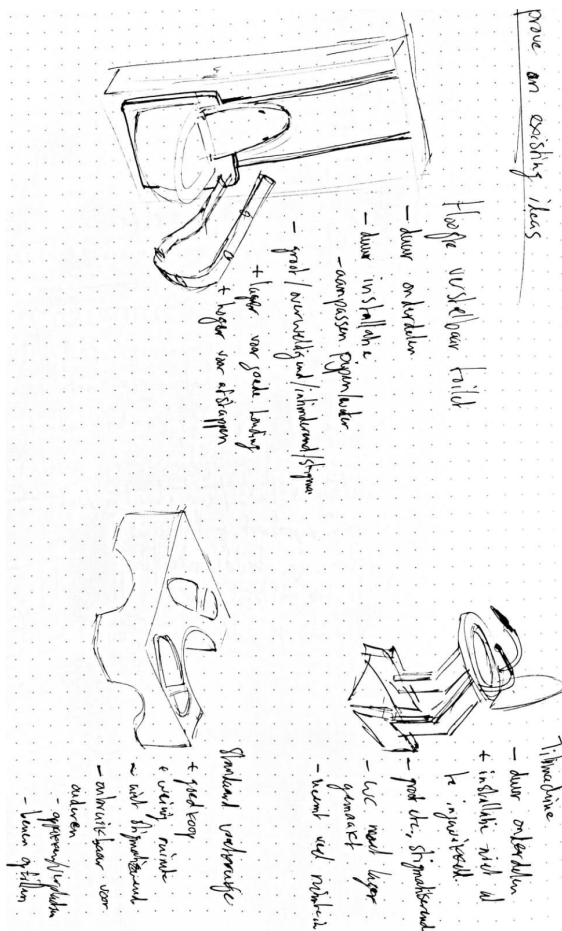 prove an existing ideas
Hoogte verstelbaar toilet
- duur onderdelen
- duur installatie
- aanpassen pijpen/water
- groot/overweldigend/intimiderend/stigma
+ lager voor goede houding
+ hoger voor afstappen
Tilmachine
- duur onderdelen
+ installatie niet al
te ingewikkeld
- groot etc, stigmatiserend
- WC moet lager
gemaakt
- neemt veel ruimte in
Standaard
+ goedkoop
+ weinig ruimte
~ niet stigmatiserend
- onbruikbaar voor
ouderen
- benen optillen